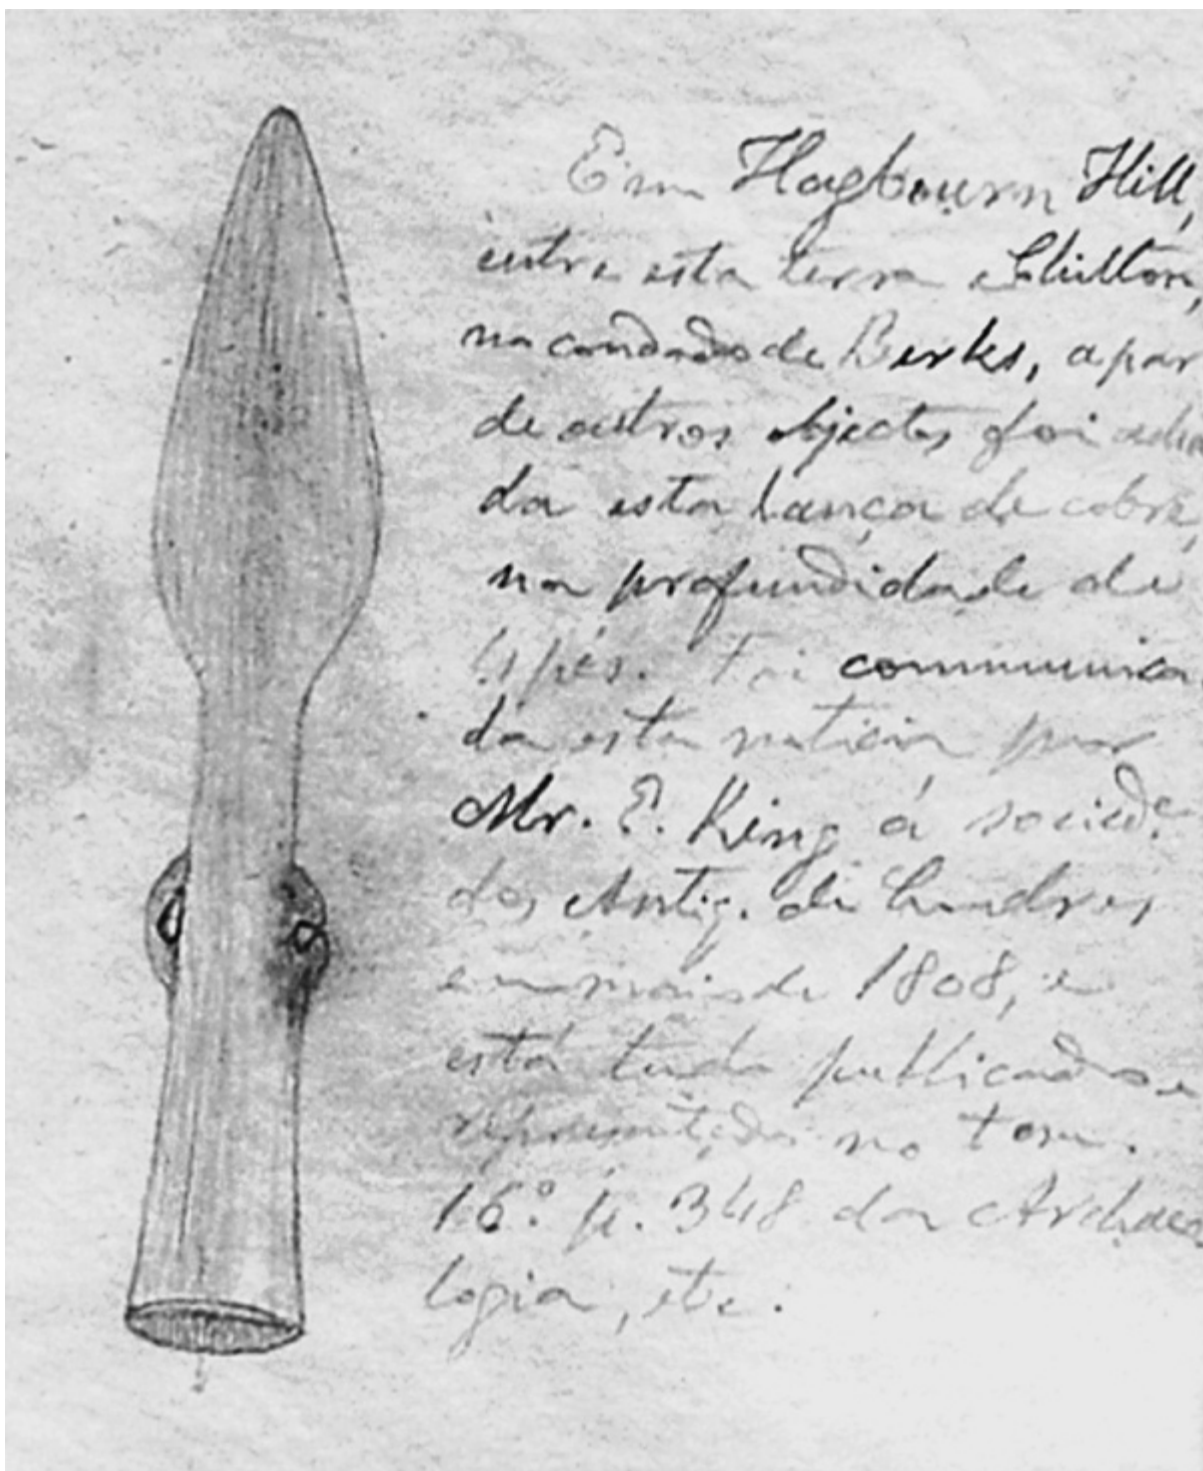 Em Hagbourn Hill,
entre esta terra e Chilton,
no condado de Berks, a par
de outros objectos foi acha
da esta lança de cobre,
na profundidade de
4 pés. Foi communica
da esta noticia por
Mr. E. King á socied.e
dos Antiq. de Londres
em maio de 1808, e
está tudo publicado e
representado no tom.
16.º p. 348 da Archaeo
logia, etc.